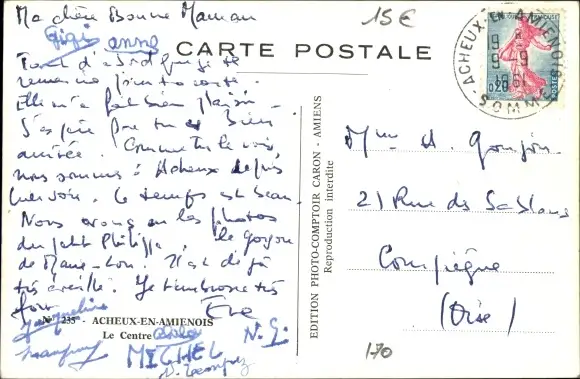 Ma chère Bonne Maman
15€
Gigi anne
CARTE POSTALE
RÉPUBLIQUE FRANÇAISE
ACHEUX-EN-AMIENOIS
9 9
1961
SOMME
0,20
POSTES
Tout d'abord que je te
remercie pour ta carte.
Elle m'a fait bien plaisir.
J'espère que tu es bien
arrivée. Comme tu le vois,
nous sommes à Acheux depuis
hier soir. Le temps est beau.
Nous avons eu les photos
du petit Philippe, le garçon
de Marie-Lou. Il est déjà
très éveillé. Je t'embrasse très
fort
Eve
Mme H.
21 Rue des Sablons
Compiègne
(Oise)
EDITION PHOTO-COMPTOIR CARON - AMIENS
Reproduction interdite
Jacqueline
N° 235 - ACHEUX-EN-AMIENOIS
Le Centre
N. G.
MICHEL
170